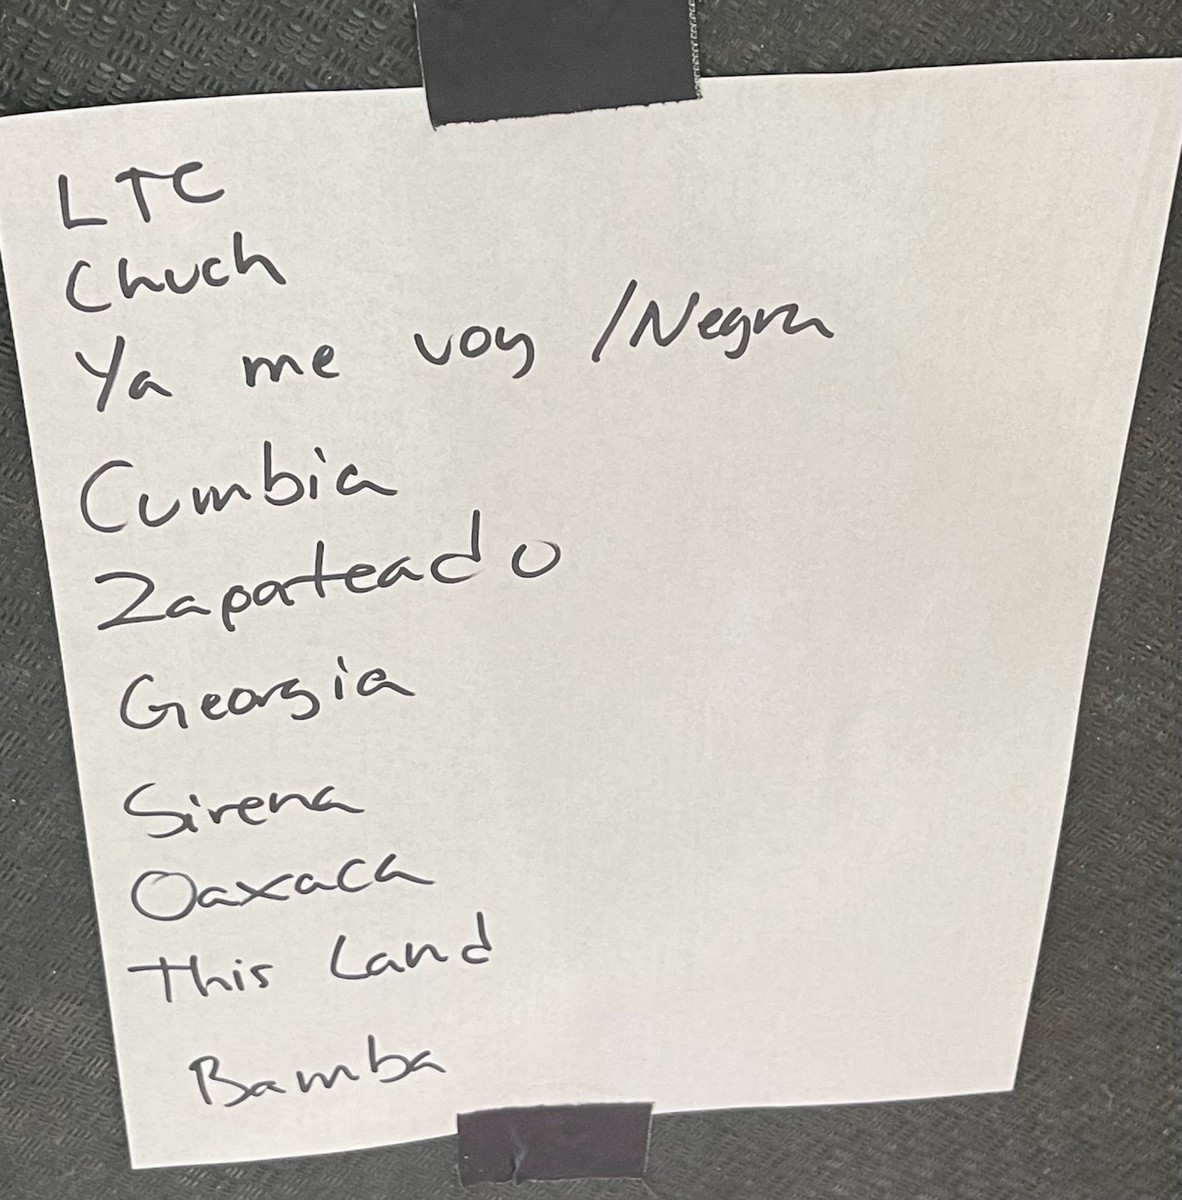 LTC
Chuch
Ya me voy /Negra
Cumbia
Zapateado
Georgia
Sirena
Oaxaca
This Land
Bamba